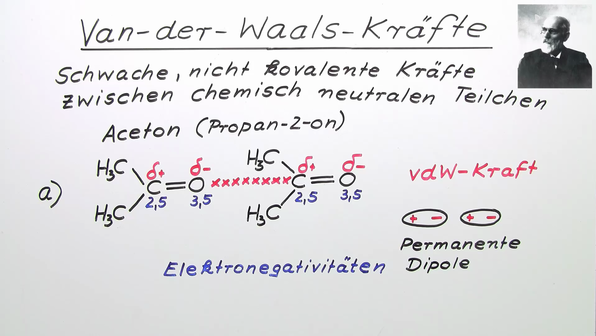 Van-der-Waals-Kräfte
Schwache, nicht kovalente Kräfte
zwischen chemisch neutralen Teilchen
Aceton (Propan-2-on)
H₃C δ+ δ- H₃C δ+ δ-
a) C=O xxxxxxxxx C=O vdW-Kraft
2,5 3,5 2,5 3,5
H₃C H₃C + - + -
Permanente
Dipole
Elektronegativitäten